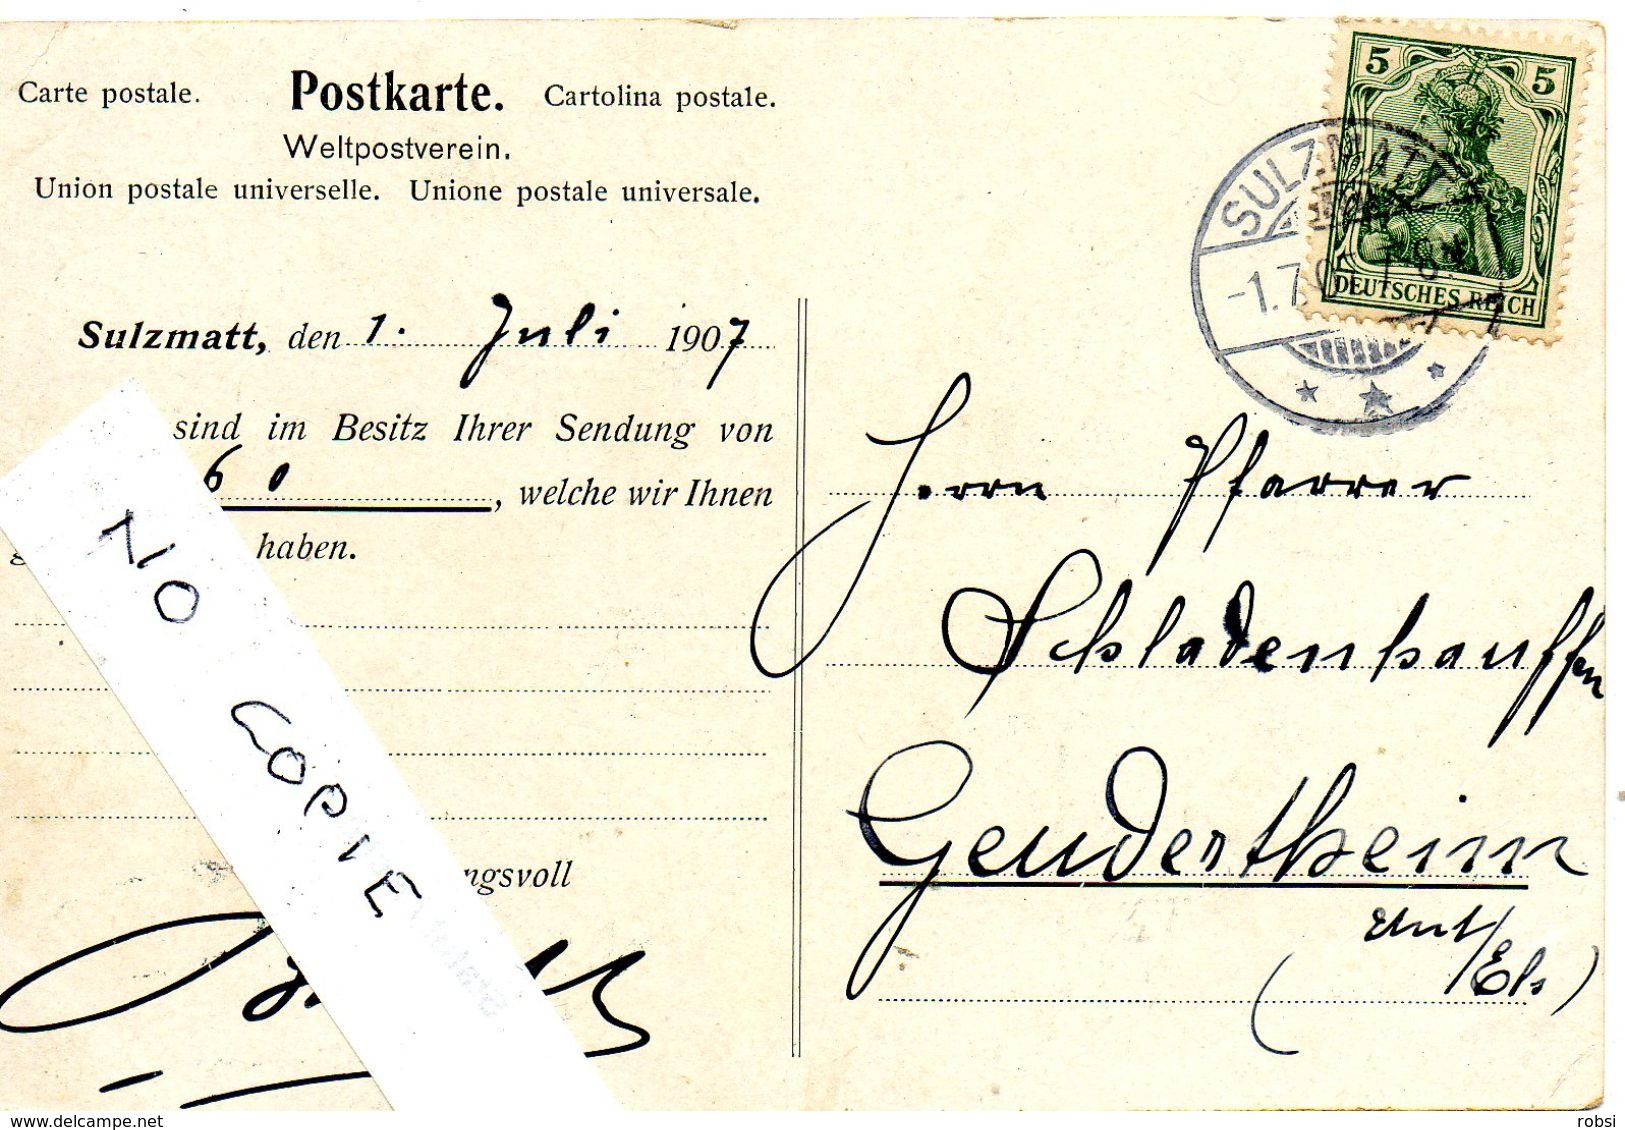 Carte postale. Postkarte. Cartolina postale.
Weltpostverein.
Union postale universelle. Unione postale universale.
5 5
DEUTSCHES REICH
SULZMATT
-1.7.0
Sulzmatt, den 1. Juli 1907
sind im Besitz Ihrer Sendung von
60, welche wir Ihnen
haben.
ngsvoll
NO COPIE
Herrn Pfarrer
Schladenhauffen
Geudertheim
(Unt/Els)
www.delcampe.net
robsi